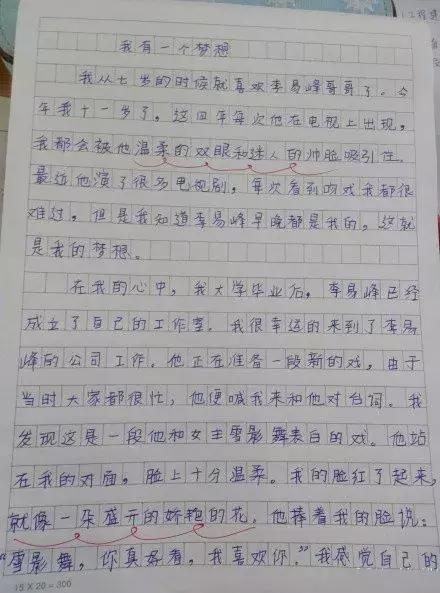 我有一个梦想
我从七岁的时候就喜欢李易峰哥哥了。今
年我十一岁了，这四年每次他在电视上出现，
我都会被他温柔的双眼和迷人的帅脸吸引住。
最近他演了很多电视剧，每次看到吻戏我都很
难过，但是我知道李易峰早晚都是我的，这就
是我的梦想。
在我的心中，我大学毕业后，李易峰已经
成立了自己的工作室。我很幸运的来到了李易
峰的公司工作。他正在准备一段新的戏，由于
当时大家都很忙，他便喊我来和他对台词。我
发现这是一段他和女主雪影舞表白的戏。他站
在我的对面，脸上十分温柔。我的脸红了起来，
就像一朵盛开的娇艳的花。他捧着我的脸说：
“雪影舞，你真好看，我喜欢你。”我感觉自己的
15×20＝300